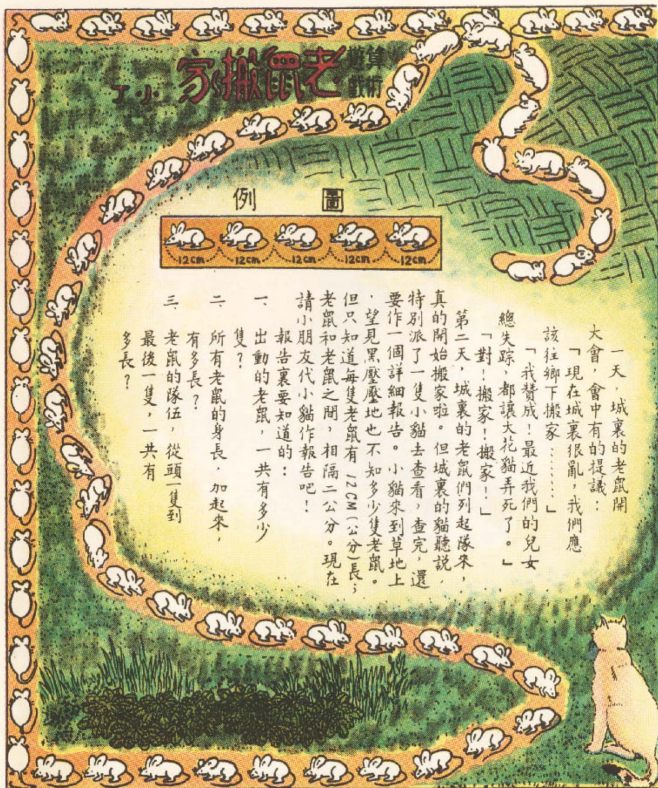 算術遊戲
老鼠搬家
小丁
圖例
12cm 12cm 12cm 12cm 12cm
一天,城裏的老鼠開
大會,會中有的提議:
「現在城裏很亂,我們應
該往鄉下搬家……」
「我賛成!最近我們的兒女
總失踪,都讓大花貓弄死了。」
「對!搬家!搬家!」
第二天,城裏的老鼠們列起隊來,
真的開始搬家啦。但城裏的貓聽説
特別派了一隻小貓去查看,查完,還
要作一個詳細報告。小貓來到草地上
,望見黑壓壓地也不知多少隻老鼠。
但只知道每隻老鼠有12CM(公分)長;
老鼠和老鼠之間,相隔二公分。現在
請小朋友代小貓作報告吧!
報告裏要知道的:
一 出動的老鼠,一共有多少
隻?
二 所有老鼠的身長,加起來,
有多長?
三 老鼠的隊伍,從頭一隻到
最後一隻,一共有
多長?